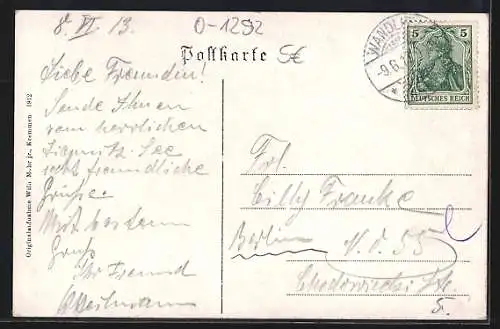 8. VI 13.
0-1292
Postkarte
5€
WANDLITZ
-9.6.
5 5
DEUTSCHES REICH
Liebe Freundin!
Sende Ihnen
vom herrlichen
Liepnitz-See
recht freundliche
Grüße.
Mit bestem
Gruß
Ihr Freund
Frl.
Cilly Franke
Berlin N. O 55
Chodowiecki Str.
5.
Originalaufnahme Wilh. Mohr jr., Kremmen 1912